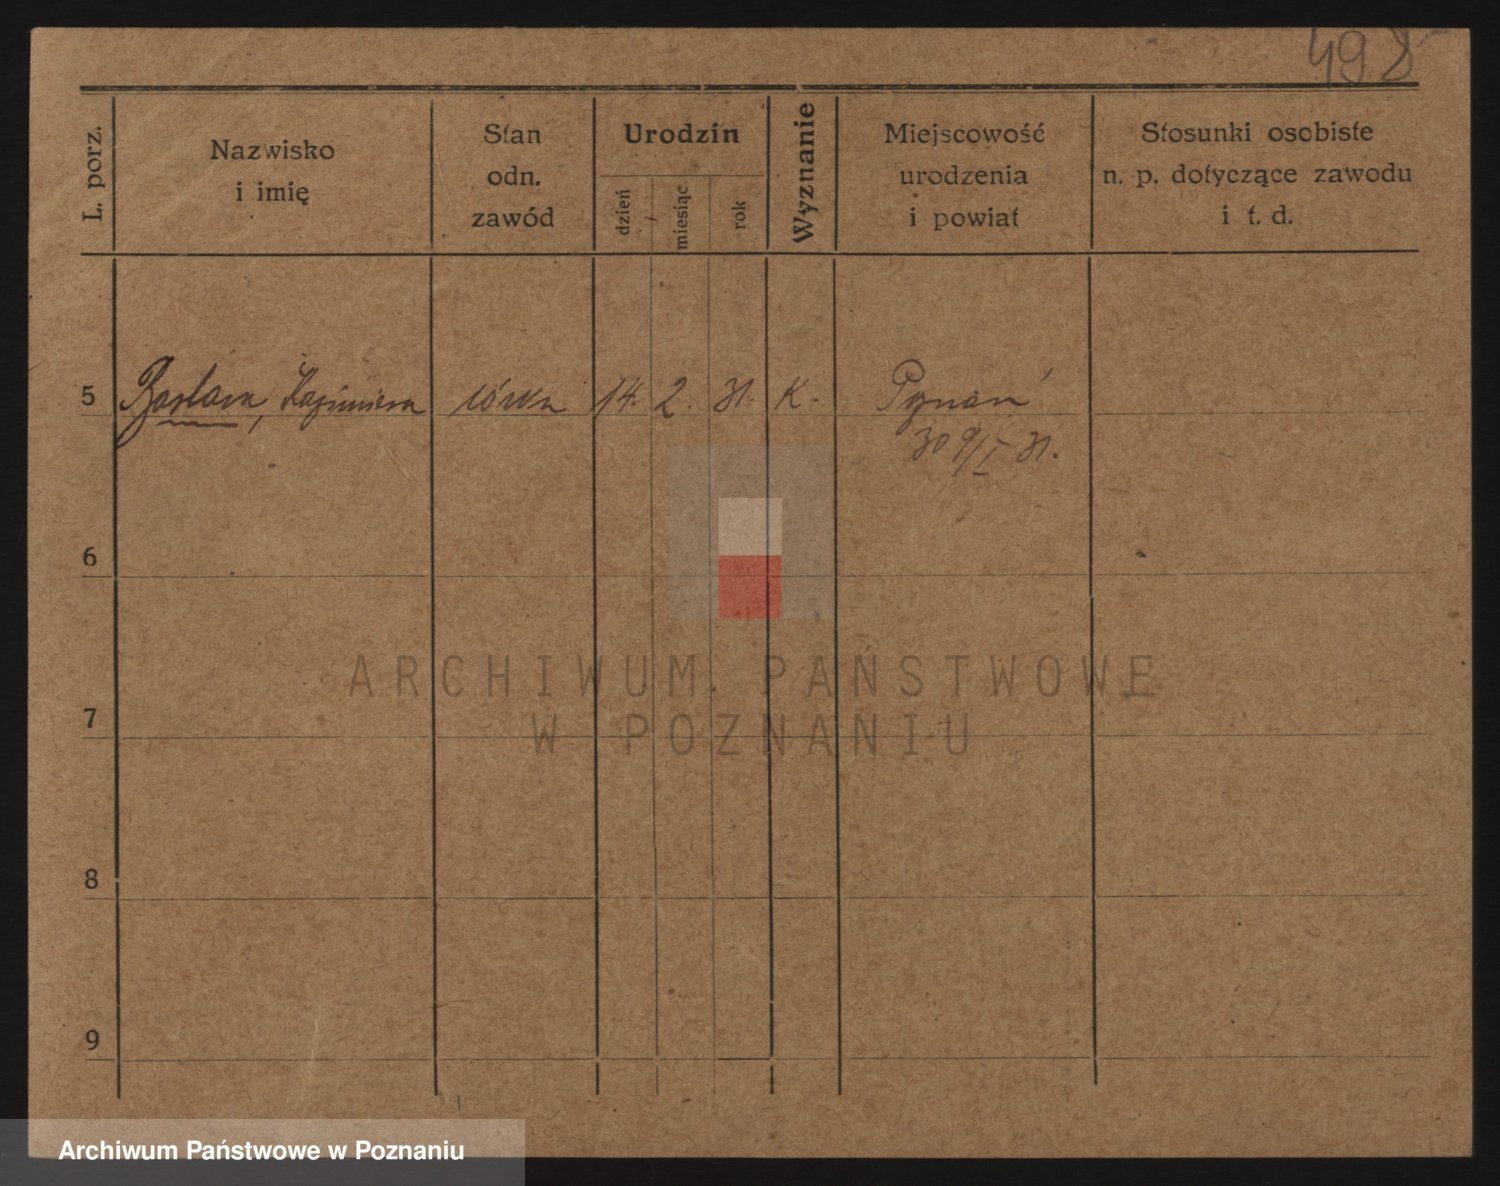 498
L. porz.
Nazwisko
i imię
Stan
odn.
zawód
Urodzin
dzień
miesiąc
rok
Wyznanie
Miejscowość
urodzenia
i powiat
Stosunki osobiste
n. p. dotyczące zawodu
i t. d.
5 Barbara, Kazimiera córka 14. 2. 31. K. Poznań
30 9/I 31.
6
ARCHIWUM PAŃSTWOWE
7
W POZNANIU
8
9
Archiwum Państwowe w Poznaniu